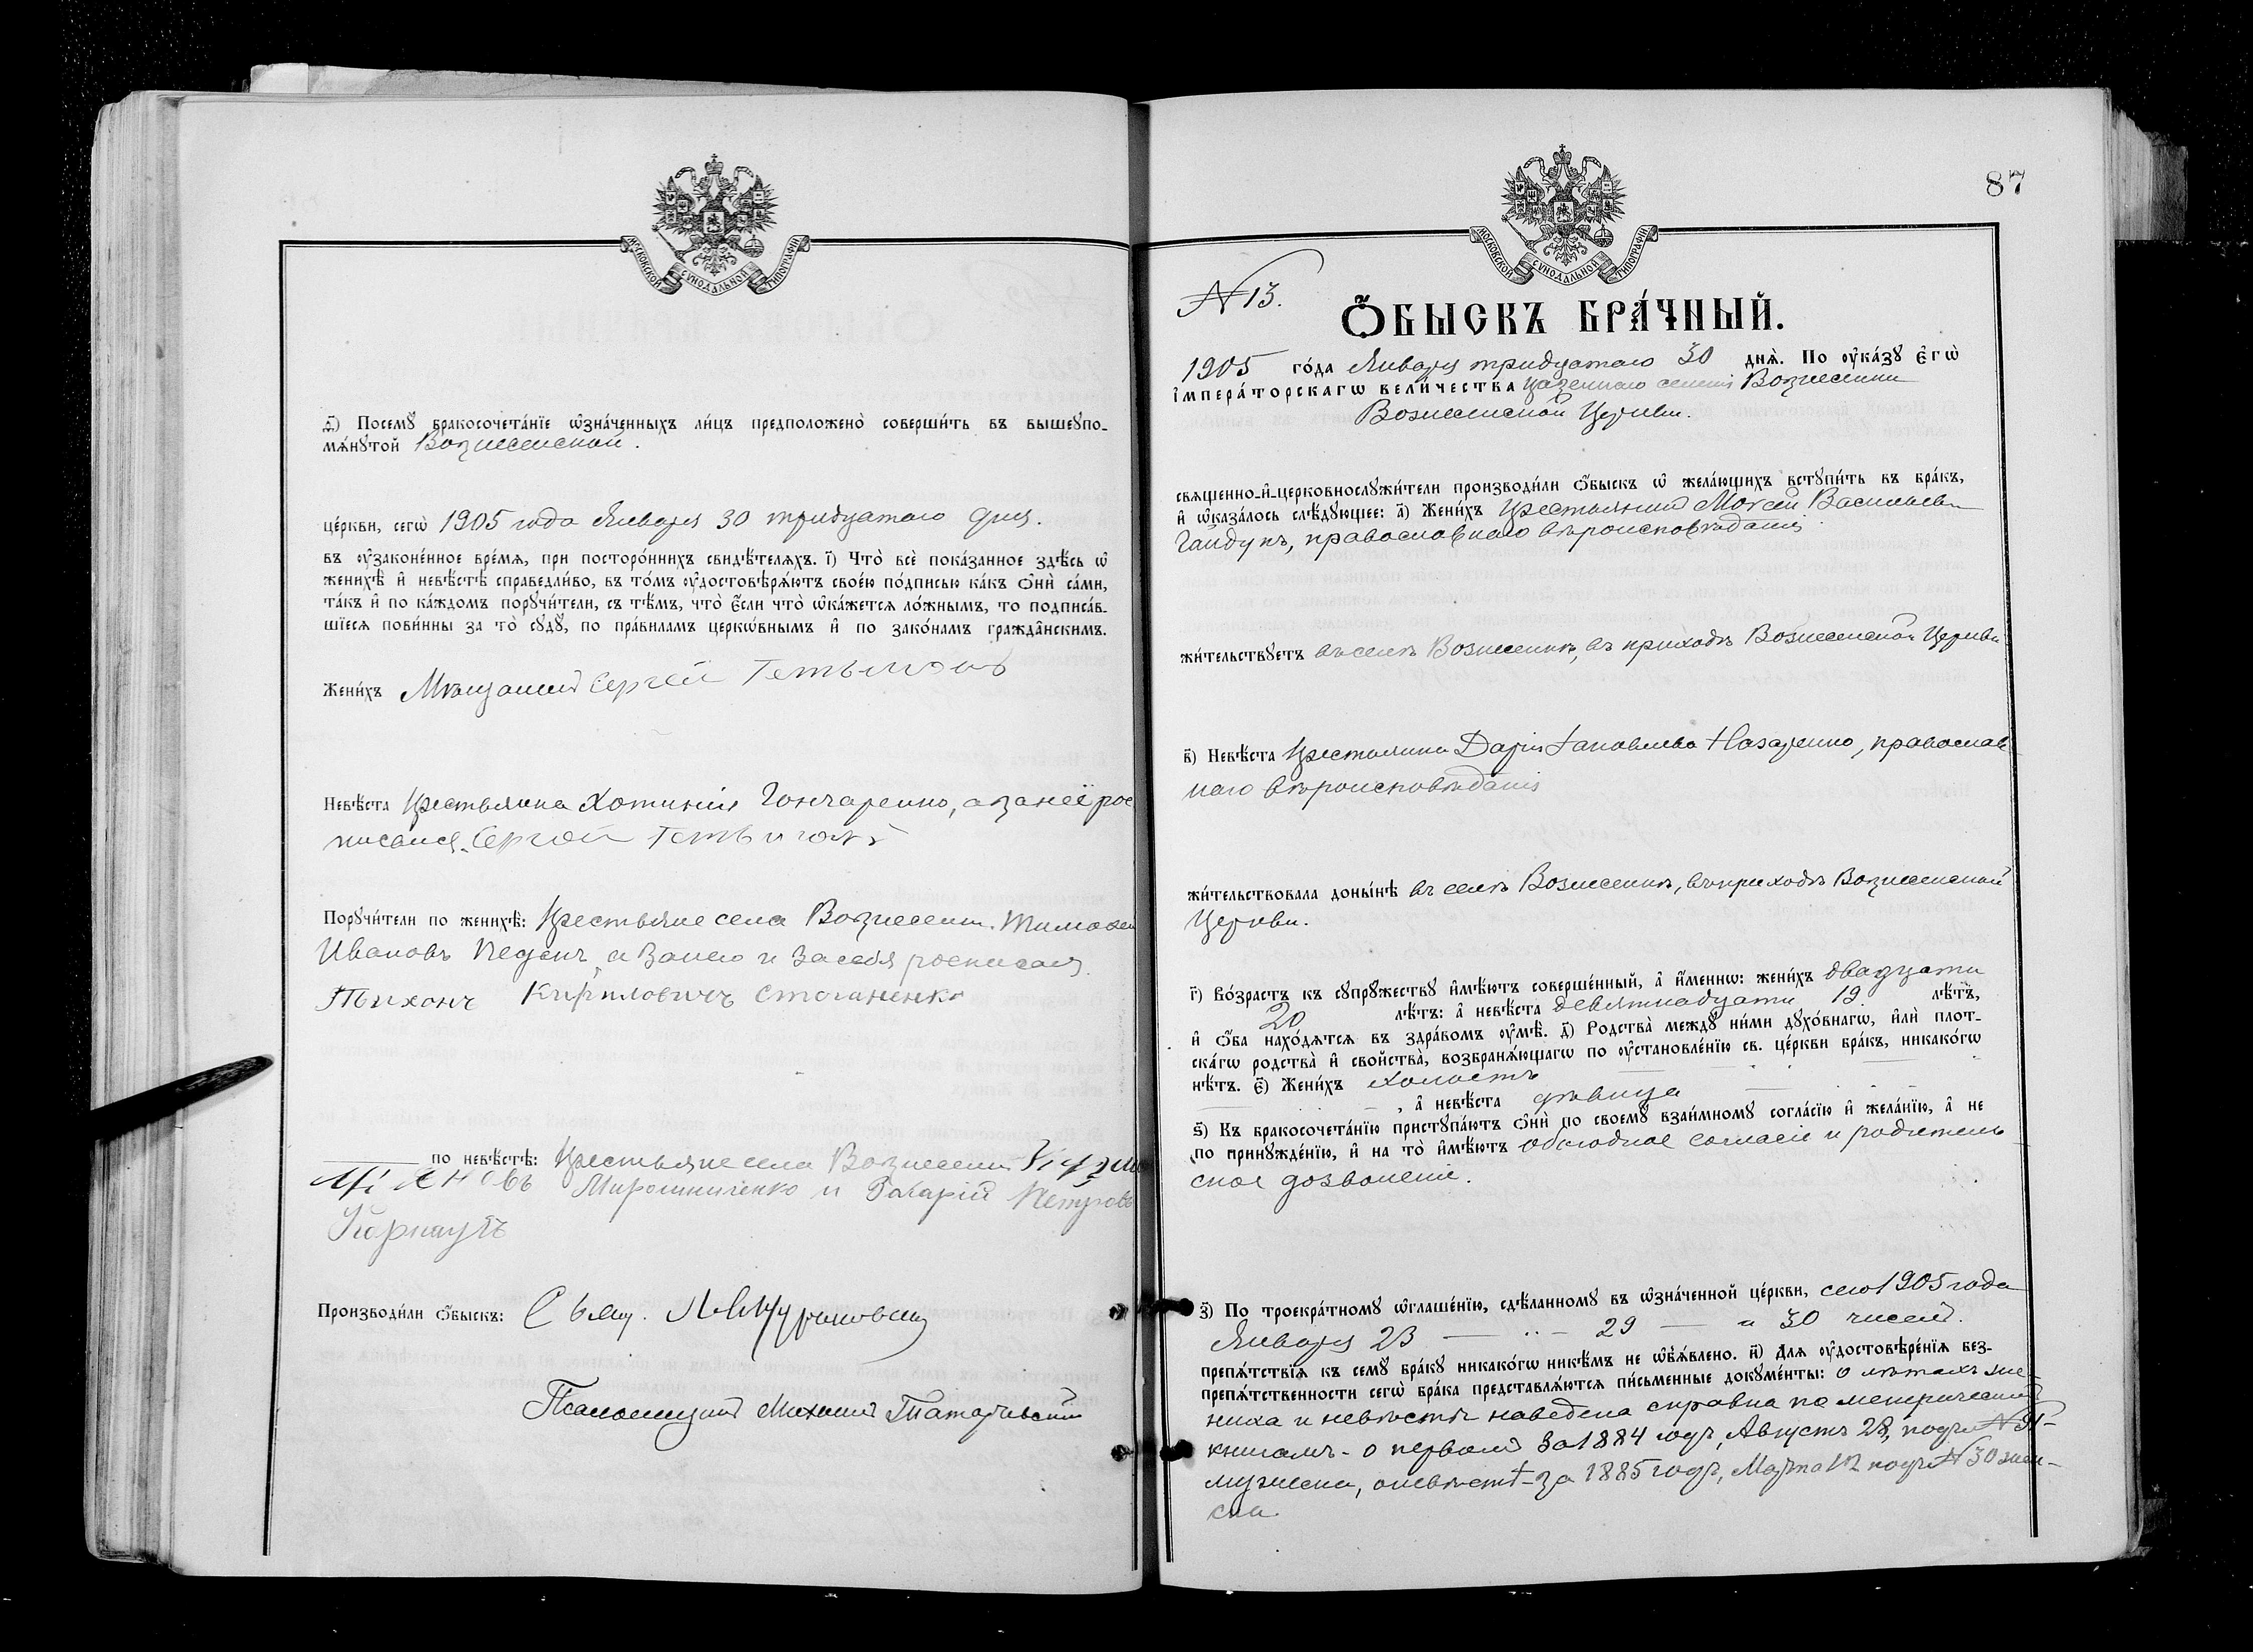 МОСКОВСКОЙ СѴНОДАЛЬНОЙ ТИПОГРАФІИ
ѳ҃) Посемꙋ̀ бракосочета́нїе ѡ҆зна́ченныхъ ли́цъ предположено̀ соверши́ть въ вышеꙋпо-
мѧ́нꙋтой Вознесенской.
це́ркви, сегѡ̀ 1905 года Января 30 тридцатаго дня.
въ ᲂу҆законе́нное вре́мѧ, при посторо́ннихъ свидѣ́телѧхъ. і҃) Что̀ всѐ пока́занное здѣ́сь ѡ҆
женихѣ̀ и҆ невѣ́стѣ справедли́во, въ то́мъ ᲂу҆достовѣрѧ́ютъ свое́ю по́дписью ка́къ ѻ҆нѝ са́ми,
та́къ и҆ по ка́ждомъ порꙋчи́тели, съ тѣ́мъ, что̀ є҆́сли что̀ ѡ҆ка́жетсѧ ло́жнымъ, то подписа́в-
шїесѧ пови́нны за то̀ сꙋдꙋ̀, по пра́виламъ церкѡ́внымъ и҆ по зако́намъ гражда̂нскимъ.
Жени́хъ Мѣщанинъ Сергей Гетьманъ
Невѣ́ста крестьянка Хотинія Гончаренко, а за неё рос
писался Сергей
Порꙋчи́тели по женихѣ̀: Крестьяне села Вознесенки. Тимофей
Ивановъ Педенъ, а за него и за себя росписался
Тихонъ Кириловичъ
по невѣ́стѣ: Крестьяне села Вознесенки
Мирошниченко и Захарій Петровъ
Производи́ли ѻ҆́быскъ: Свящ.
Псаломщикъ Михаилъ Татаровскій
87
МОСКОВСКОЙ СѴНОДАЛЬНОЙ ТИПОГРАФІИ
№ 13.
Ѻ҆́БЫСКЪ БРА́ЧНЫЙ.
1905 го́да Января тридцатаго 30 днѧ̀. По ᲂу҆ка́зꙋ є҆гѡ̀
і҆мпера́торскагѡ вели́чества казеннаго селенія Вознесенки
Вознесенской Церкви.
свѧщенно-и҆-церковнослꙋжи́тели производи́ли ѻ҆́быскъ ѡ҆ жела́ющихъ встꙋпи́ть въ бра́къ,
и҆ ѡ҆каза́лось слѣ́дꙋющее: а҃) Жени́хъ крестьянинъ Мотсей Васильевъ
Гайдукъ, православнаго вѣроисповѣданія
жи́тельствꙋетъ въ селѣ Вознесенкѣ, въ приходѣ Вознесенской Церкви
в҃) Невѣ́ста крестьянка Дарія Іаковлева Назаренко, православ
наго вѣроисповѣданія
жи́тельствовала доны́нѣ въ селѣ Вознесенкѣ, въ приходѣ Вознесенской
Церкви.
г҃) Во́зрастъ къ сꙋпрꙋ́жествꙋ и҆мѣ́ютъ соверше́нный, а҆ и҆́меннѡ: жени́хъ двадцати
20 лѣ́тъ: а҆ невѣ́ста девятнадцати 19. лѣ́тъ,
и҆ ѻ҆́ба нахо́дѧтсѧ въ здра́вомъ ᲂу҆мѣ̀. д҃) Родства̀ междꙋ̀ ни́ми дꙋхо́внагѡ, и҆лѝ плот-
ска́гѡ родства̀ и҆ сво́йства, возбранѧ́ющагѡ по ᲂу҆становле́нїю св. це́ркви бра́къ, никако́гѡ
нѣ́тъ. є҃) Жени́хъ холостъ
, а҆ невѣ́ста дѣвица
ѕ҃) Къ бракосочета́нїю пристꙋпа́ютъ ѻ҆нѝ по своемꙋ̀ взаи́мномꙋ согла́сїю и҆ жела́нїю, а҆ не
по принꙋжде́нїю, и҆ на то̀ и҆мѣ́ютъ обоюдное согласіе и родитель-
ское дозволеніе.
з҃) По троекра́тномꙋ ѡ҆глаше́нїю, сдѣ́ланномꙋ въ ѡ҆зна́ченной це́ркви, сего 1905 года
Января 23 — 29 — и 30 чиселъ.
препѧ́тствїѧ къ семꙋ̀ бра́кꙋ никако́гѡ никѣ́мъ не ѡ҆б̾ѧ́влено. и҃) Длѧ ᲂу҆достовѣре́нїѧ без-
препѧ́тственности сегѡ̀ бра́ка представлѧ́ютсѧ пи́сьменные докꙋме́нты: о лѣтахъ же-
ниха и невѣсты наведена справка по метрическимъ
книгамъ - о первомъ за 1884 годъ, Августъ 28, подъ №
мужеска, о невѣстѣ - за 1885 годъ, Марта подъ № 30 жен-
ска.